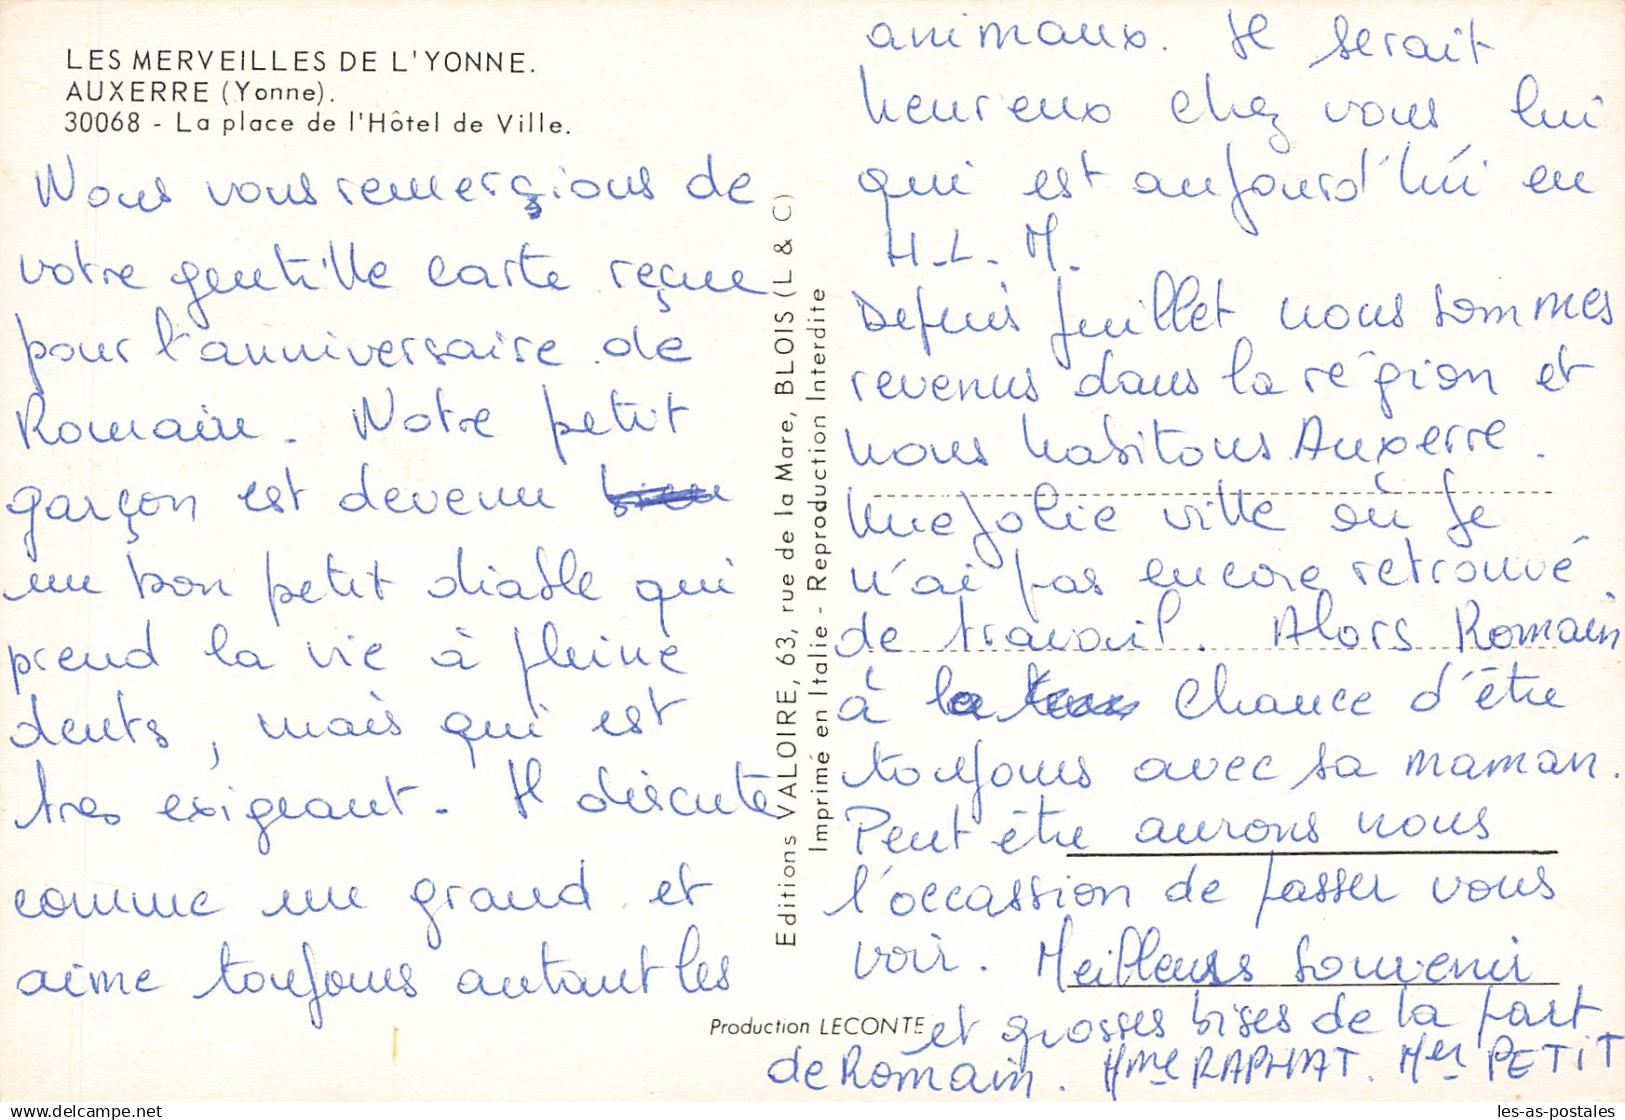 LES MERVEILLES DE L'YONNE.
AUXERRE (Yonne).
30068 - La place de l'Hôtel de Ville.
Nous vous remerçions de
votre gentille carte reçue
pour l'anniversaire de
Romain. Notre petit
garçon est devenu
un bon petit diable qui
prend la vie à pleine
dents, mais qui est
très exigeant. Il discute
comme un grand et
aime toujours autant les
Editions VALOIRE, 63, rue de la Mare, BLOIS (L & C)
Imprimé en Italie - Reproduction Interdite
Production LECONTE
animaux. Il serait
heureux chez vous lui
qui est aujourd'hui en
H.L.M.
Depuis juillet nous sommes
revenus dans la région et
nous habitons Auxerre.
Une jolie ville où je
n'ai pas encore retrouvé
de travail. Alors Romain
à la chance d'être
toujours avec sa maman.
Peut être aurons nous
l'occassion de passer vous
voir. Meilleurs souvenir
et grosses bises de la part
de Romain. Mme RAPHAT. Mer PETIT
les-as-postales